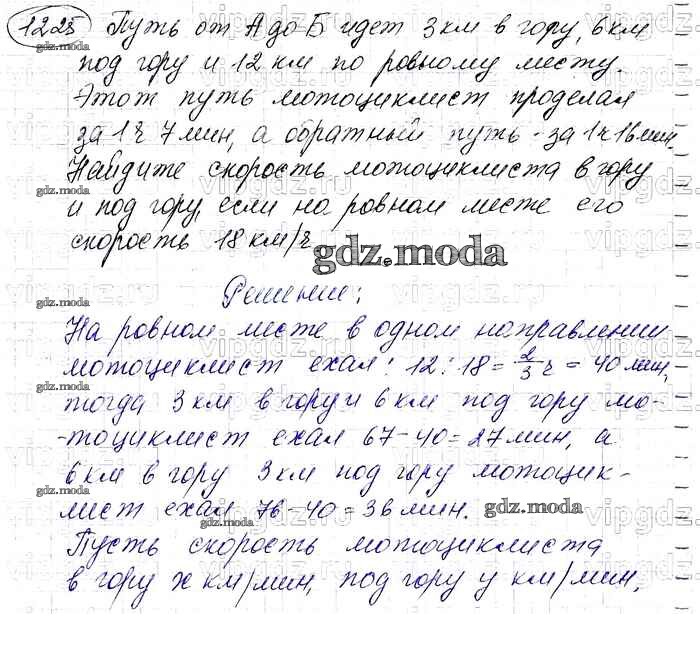 1225 Путь от А до Б идет 3 км в гору, 6 км
под гору и 12 км по ровному месту.
Этот путь мотоциклист проделал
за 1 ч 7 мин, а обратный путь - за 1 ч 16 мин.
Найдите скорость мотоциклиста в гору
и под гору, если на ровном месте его
скорость 18 км/ч.
gdz.moda
Решение:
На ровном месте в одном направлении
мотоциклист ехал: 12 : 18 = 2/3 ч = 40 мин,
тогда 3 км в гору и 6 км под гору мо-
-тоциклист ехал 67-40=27 мин, а
6 км в гору 3 км под гору мотоцик-
лист ехал 76-40=36 мин.
gdz.moda
Пусть скорость мотоциклиста
в гору x км/мин, под гору y км/мин,